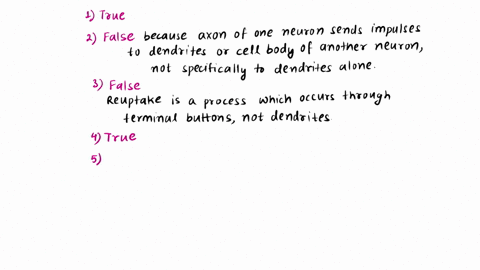 1) True
2) False because axon of one neuron sends impulses
to dendrites or cell body of another neuron,
not specifically to dendrites alone.
3) False
Reuptake is a process which occurs through
terminal buttons, not dendrites
4) True
5)